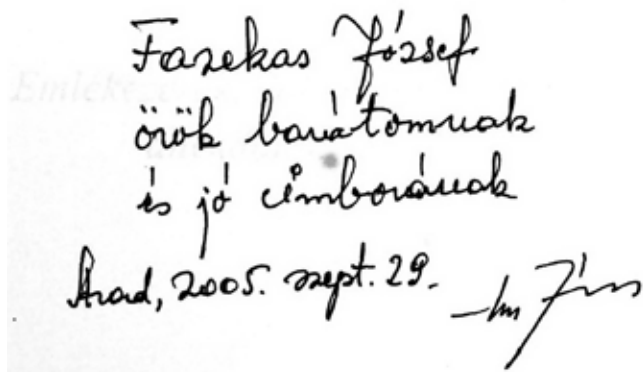 Fazekas József
örök barátomnak
és jó cimborának
Arad, 2005. szept. 29.